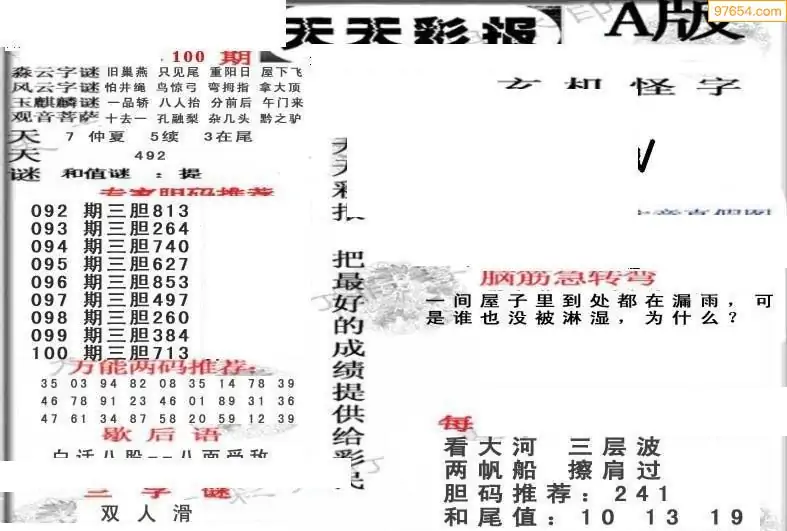 97654.com
天天彩报 A版
100 期
森云字谜 旧巢燕 只见尾 重阳日 屋下飞
风云字谜 怕井绳 鸟惊弓 弯拇指 拿大顶
玉麒麟谜 一品轿 八人抬 分前后 午门来
观音菩萨 十去一 孔融梨 杂几头 黔之驴
天 7 仲夏 5续 3在尾
天 492
谜 和值谜 : 提
专家胆码推荐
092 期三胆813
093 期三胆264
094 期三胆740
095 期三胆627
096 期三胆853
097 期三胆497
098 期三胆260
099 期三胆384
100 期三胆713
万能两码推荐:
35 03 94 82 08 35 14 78 39
46 78 91 23 46 01 89 31 36
47 61 34 87 58 20 59 12 39
歇后语
白话八股--八面受敌
三字谜
双人滑
天天彩报 把最好的成绩提供给彩民
玄机怪字
脑筋急转弯
一间屋子里到处都在漏雨，可
是谁也没被淋湿，为什么？
每
看大河 三层波
两帆船 擦肩过
胆码推荐：241
和尾值：10 13 19